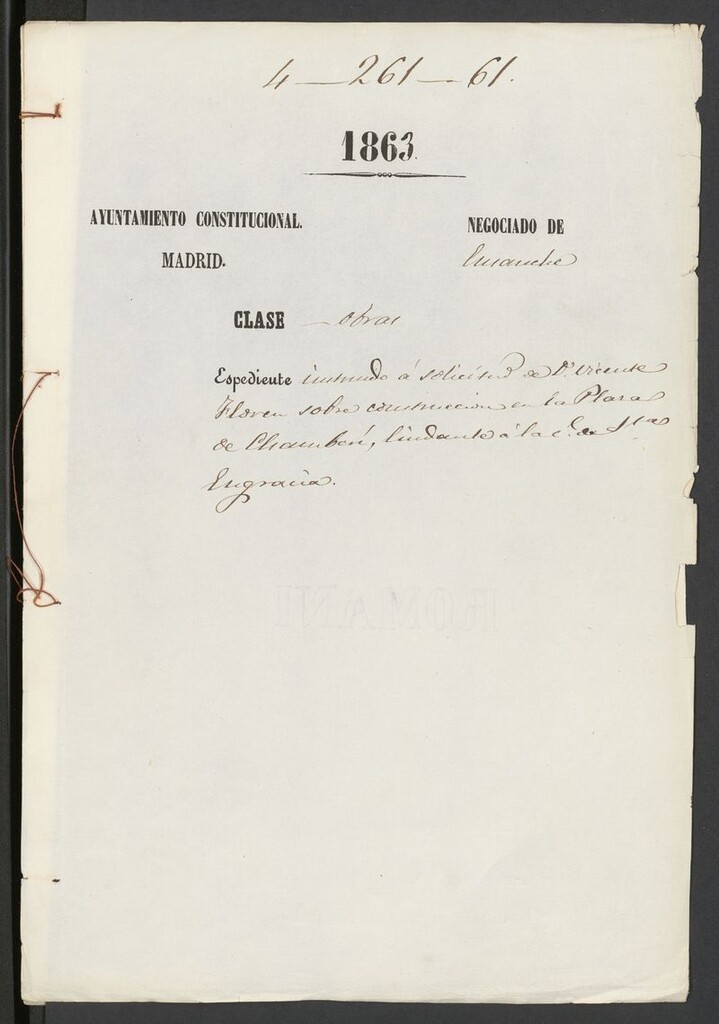 4 — 261 — 61.
1863.
AYUNTAMIENTO CONSTITUCIONAL.
MADRID.
NEGOCIADO DE
Ensanche
CLASE — obras
Espediente instruido á solicitud de Dn. Vicente
Floren sobre construccion en la Plaza
de Chamberí, lindante á la c.e de Sta
Engracia.
ROMANI